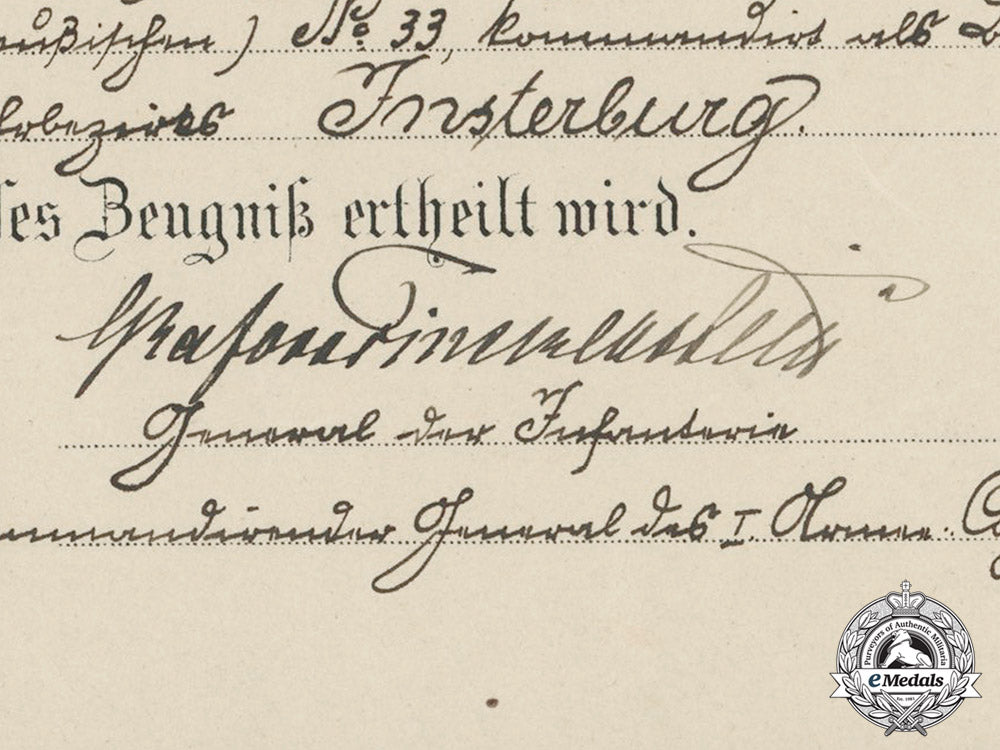 eußischen) No. 33, kommandirt als B
hrbezirks Insterburg.
ses Zeugniß ertheilt wird.
Graf von Finckenstein
General der Infanterie
ommandirender General des I. Armee-Co
Purveyors of Authentic Militaria
eMedals
Est. 1985